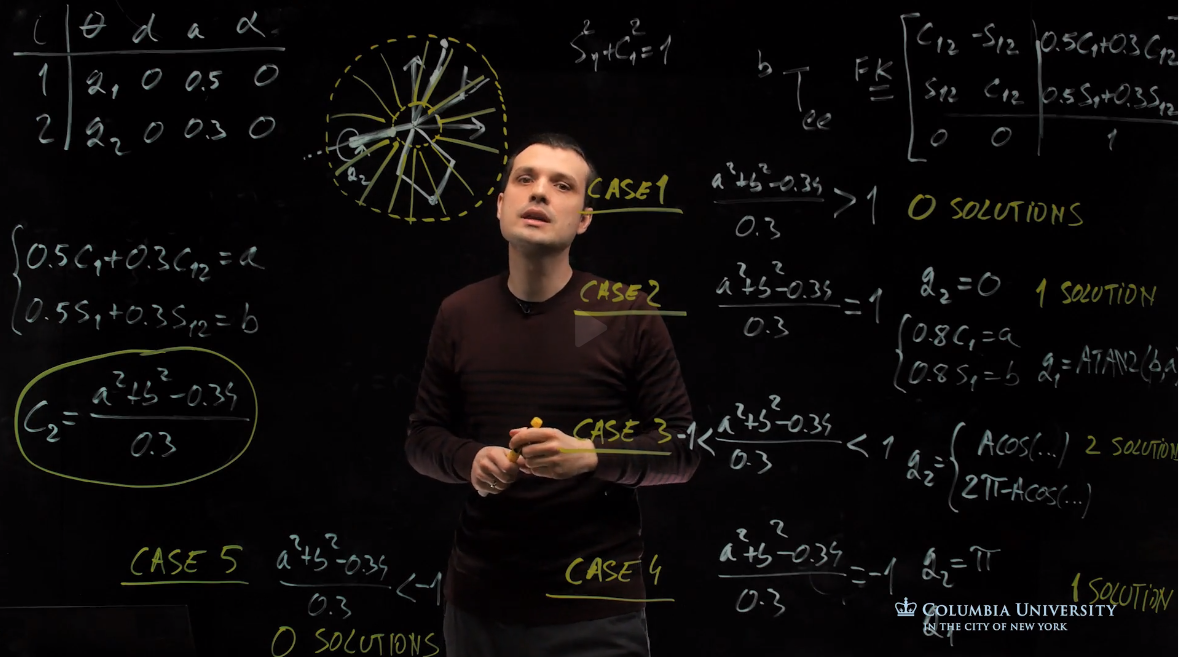 i | θ d a α
1 | q₁ 0 0.5 0
2 | q₂ 0 0.3 0
q₂
S₁²+C₁²=1
ᵇT_ee FK = [C₁₂ -S₁₂ | 0.5C₁+0.3C₁₂
S₁₂ C₁₂ | 0.5S₁+0.3S₁₂
0 0 | 1
{0.5C₁+0.3C₁₂=a
0.5S₁+0.3S₁₂=b
C₂= (a²+b²-0.34)/0.3
CASE 1 (a²+b²-0.34)/0.3 >1 0 SOLUTIONS
CASE 2 (a²+b²-0.34)/0.3 =1 q₂=0 1 SOLUTION
{0.8C₁=a
0.8S₁=b q₁=ATAN2(b,a
CASE 3 -1< (a²+b²-0.34)/0.3 <1 q₂={ACOS(...) 2 SOLUTION
2π-ACOS(...)
CASE 4 (a²+b²-0.34)/0.3 =-1 q₂=π
1 SOLUTION
q₁
CASE 5 (a²+b²-0.34)/0.3 <-1
0 SOLUTIONS
COLUMBIA UNIVERSITY
IN THE CITY OF NEW YORK